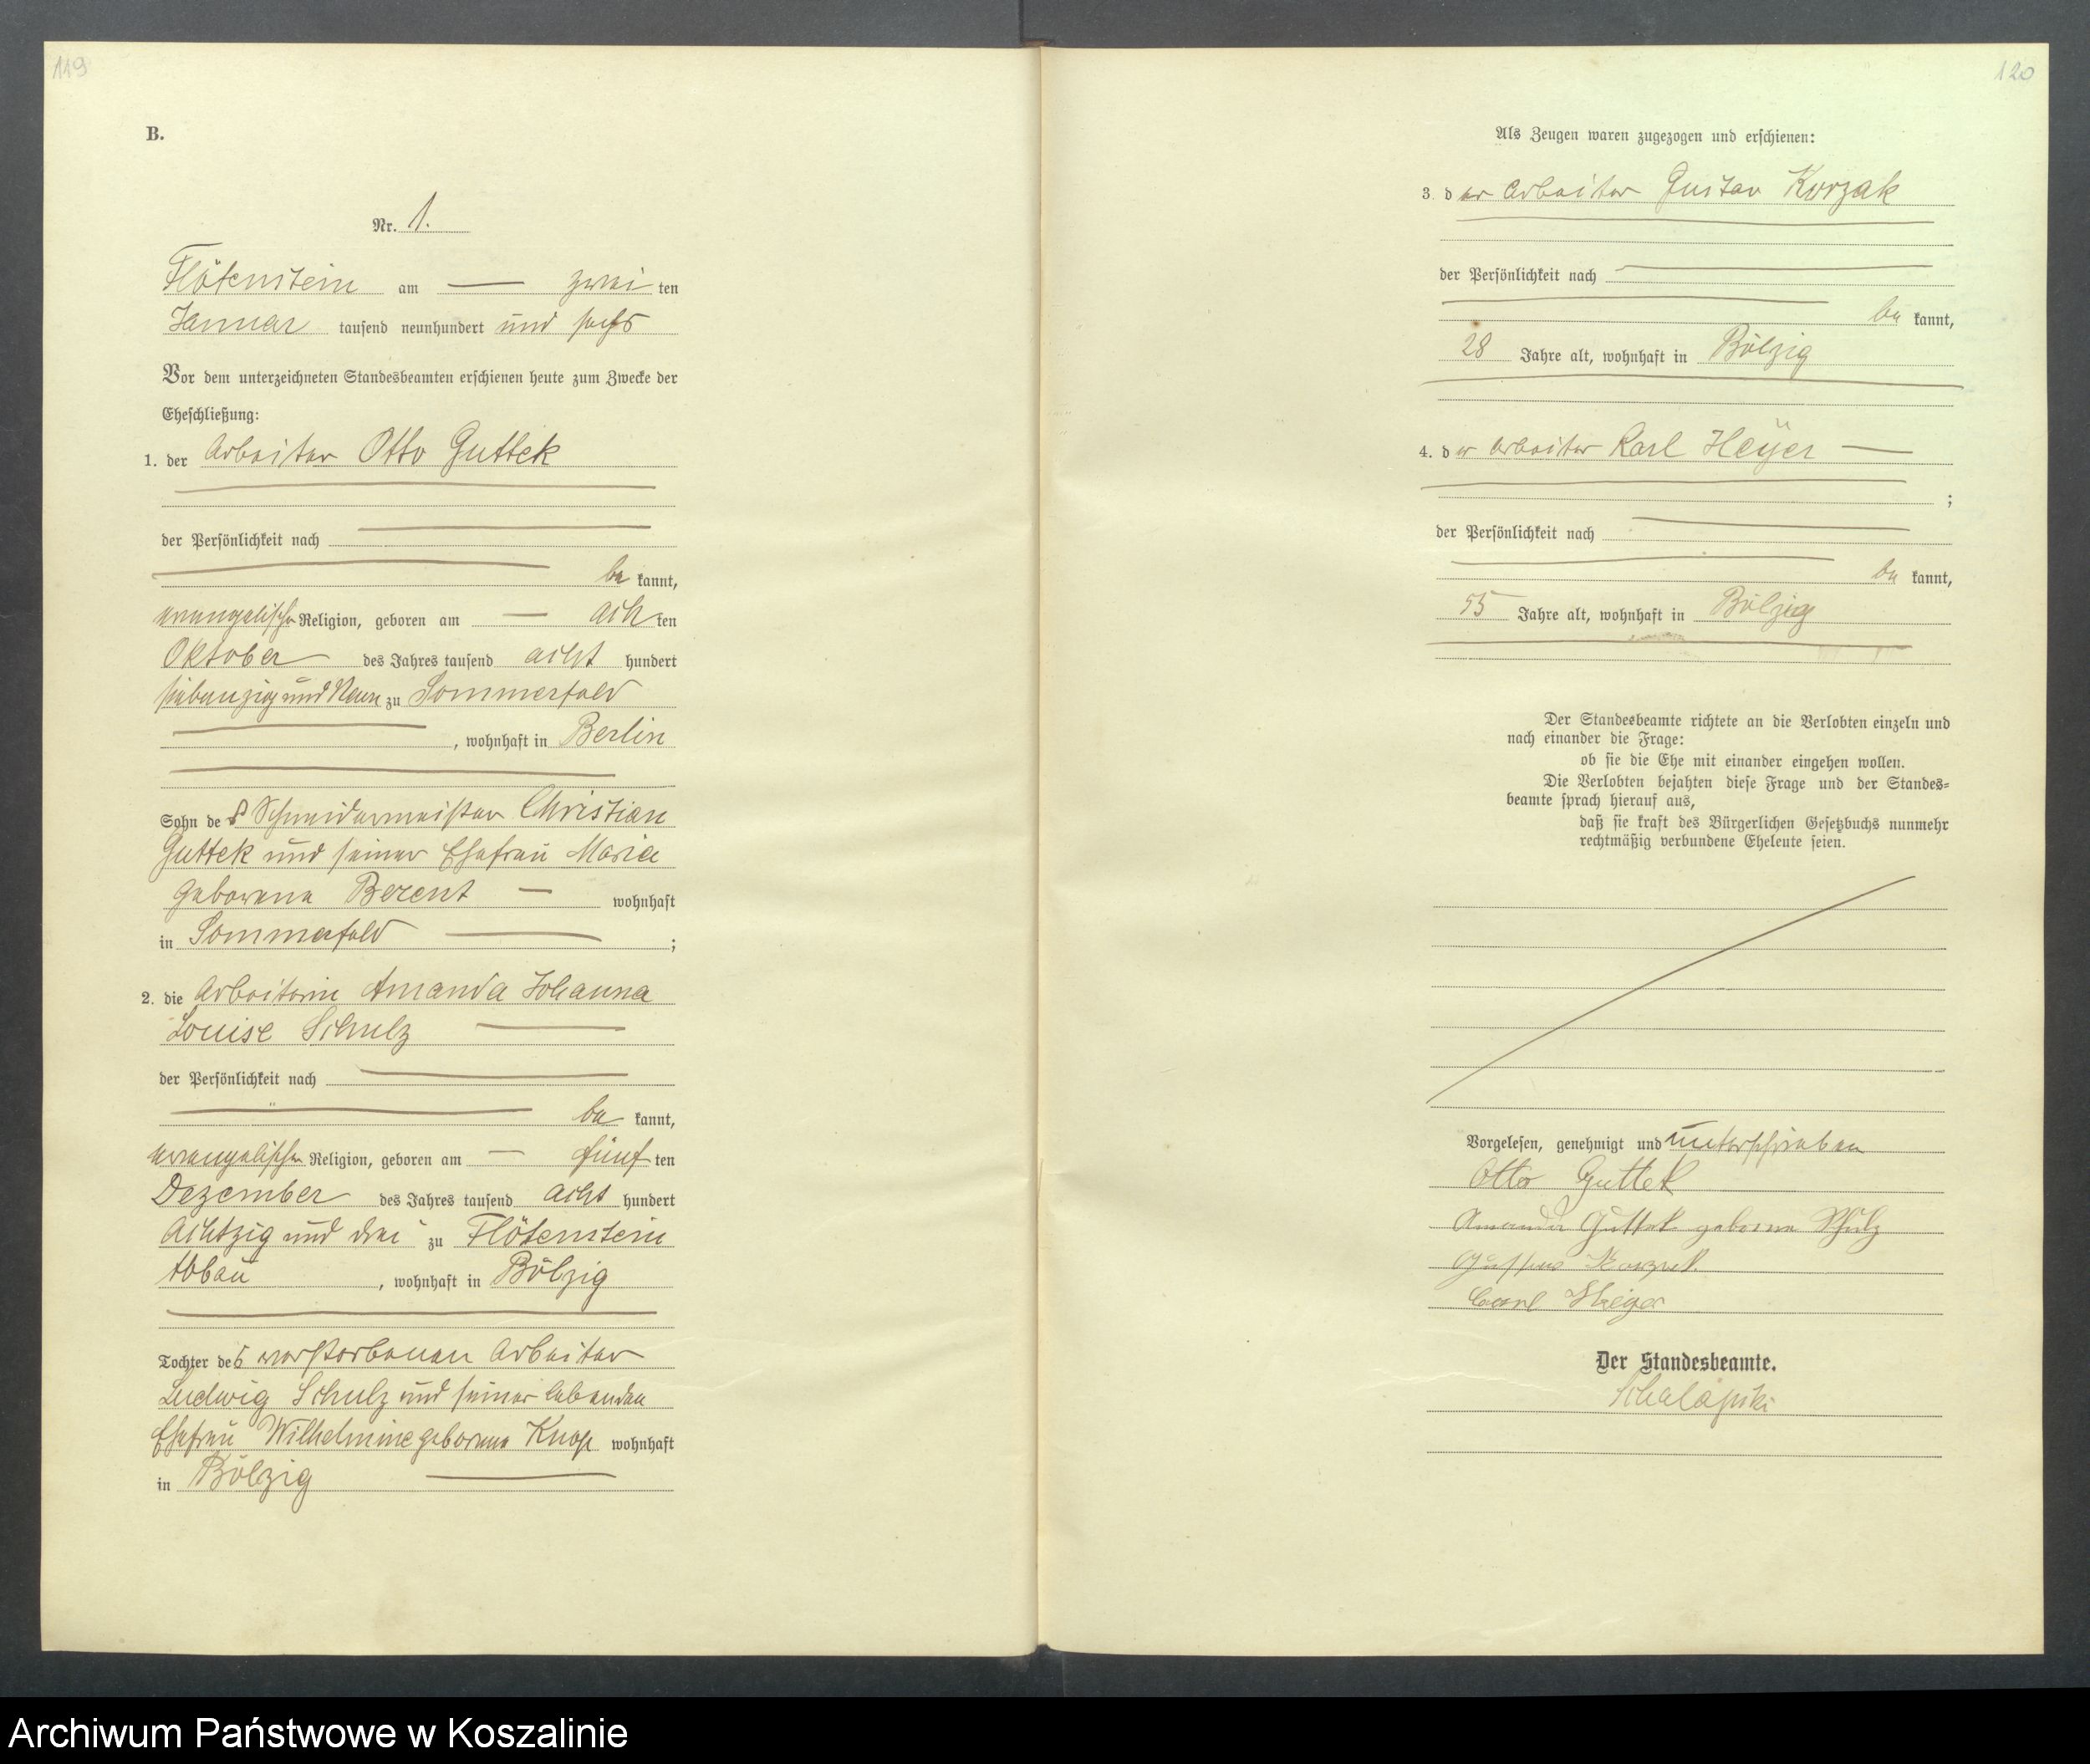 119
B.
Nr. 1.
Flötenstein am — zwei ten
Januar tausend neunhundert und sechs
Vor dem unterzeichneten Standesbeamten erschienen heute zum Zwecke der
Eheschließung:
1. der Arbeiter Otto Guttek
der Persönlichkeit nach
be kannt,
evangelischer Religion, geboren am — ach ten
Oktober des Jahres tausend acht hundert
siebenzig und Neun zu Sommerfeld
, wohnhaft in Berlin
Sohn des Schneidermeister Christian
Guttek und seiner Ehefrau Maria
geborene Berent — wohnhaft
in Sommerfeld ;
2. die Arbeiterin Amanda Johanna
Louise Schulz
der Persönlichkeit nach
be kannt,
evangelischer Religion, geboren am — fünf ten
Dezember des Jahres tausend acht hundert
Achtzig und drei zu Flötenstein
Abbau , wohnhaft in Bölzig
Tochter des verstorbenen Arbeiter
Ludwig Schulz und seiner lebenden
Ehefrau Wilhelmine geborene Knop wohnhaft
in Bölzig
120
Als Zeugen waren zugezogen und erschienen:
3. der Arbeiter Gustav Korzak
der Persönlichkeit nach
be kannt,
28 Jahre alt, wohnhaft in Bölzig
4. der Arbeiter Karl Heyer —
;
der Persönlichkeit nach
be kannt,
55 Jahre alt, wohnhaft in Bölzig
Der Standesbeamte richtete an die Verlobten einzeln und
nach einander die Frage:
ob sie die Ehe mit einander eingehen wollen.
Die Verlobten bejahten diese Frage und der Standes=
beamte sprach hierauf aus,
daß sie kraft des Bürgerlichen Gesetzbuchs nunmehr
rechtmäßig verbundene Eheleute seien.
Vorgelesen, genehmigt und unterschrieben
Otto Guttek
Amanda Guttek geborene Schulz
Gustav Korzak
Carl Heyer
Der Standesbeamte.
Archiwum Państwowe w Koszalinie